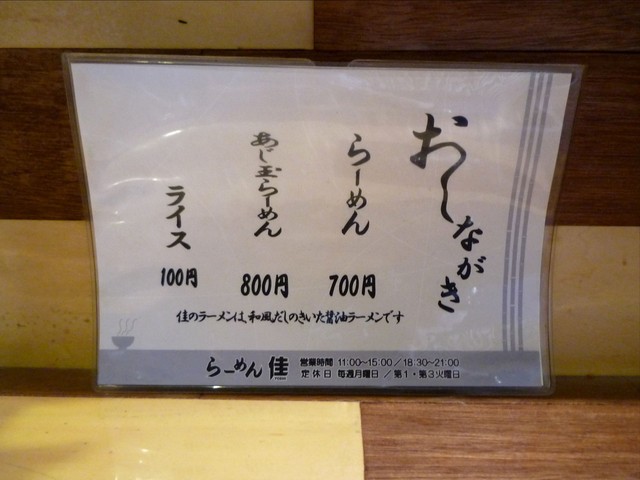 おしながき
らーめん
700円
あじ玉らーめん
800円
ライス
100円
佳のラーメンは、和風だしのきいた醤油ラーメンです
らーめん 佳
営業時間 11:00~15:00/18:30~21:00
定休日 毎週月曜日/第1・第3火曜日